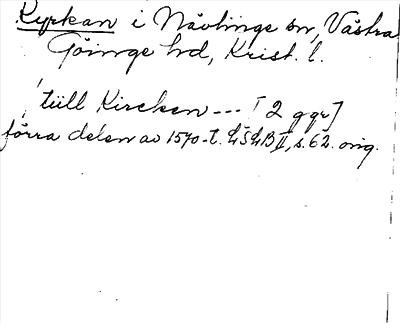 Kyrkan i Nävlinge sn, Västra
Göinge hd, Krist. l.
tüll Kircken --- [2 ggr]
förra delen av 1570-t. LSLB II, s. 62. orig.